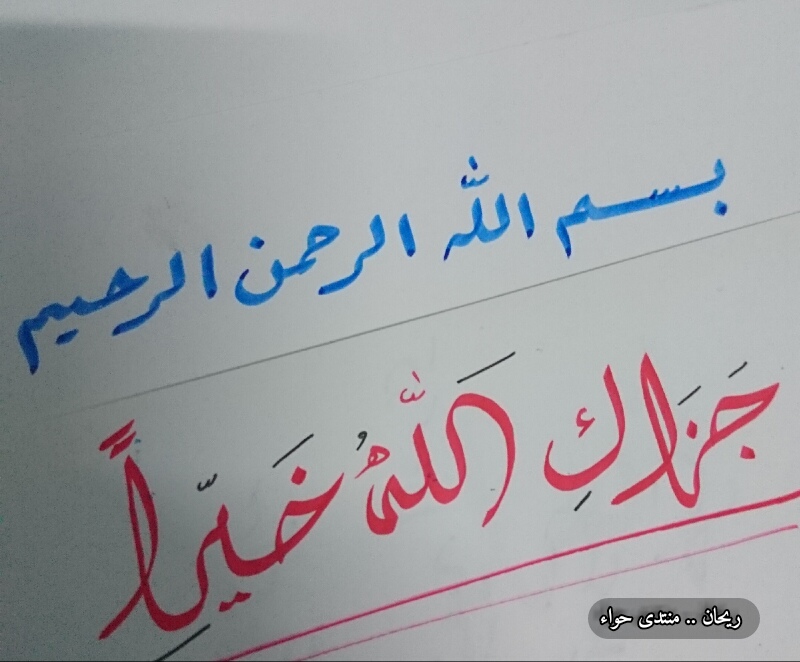 بسم الله الرحمن الرحيم
جَزَاكِ اللَّهُ خَيِّراً
ريحان .. منتدى حواء